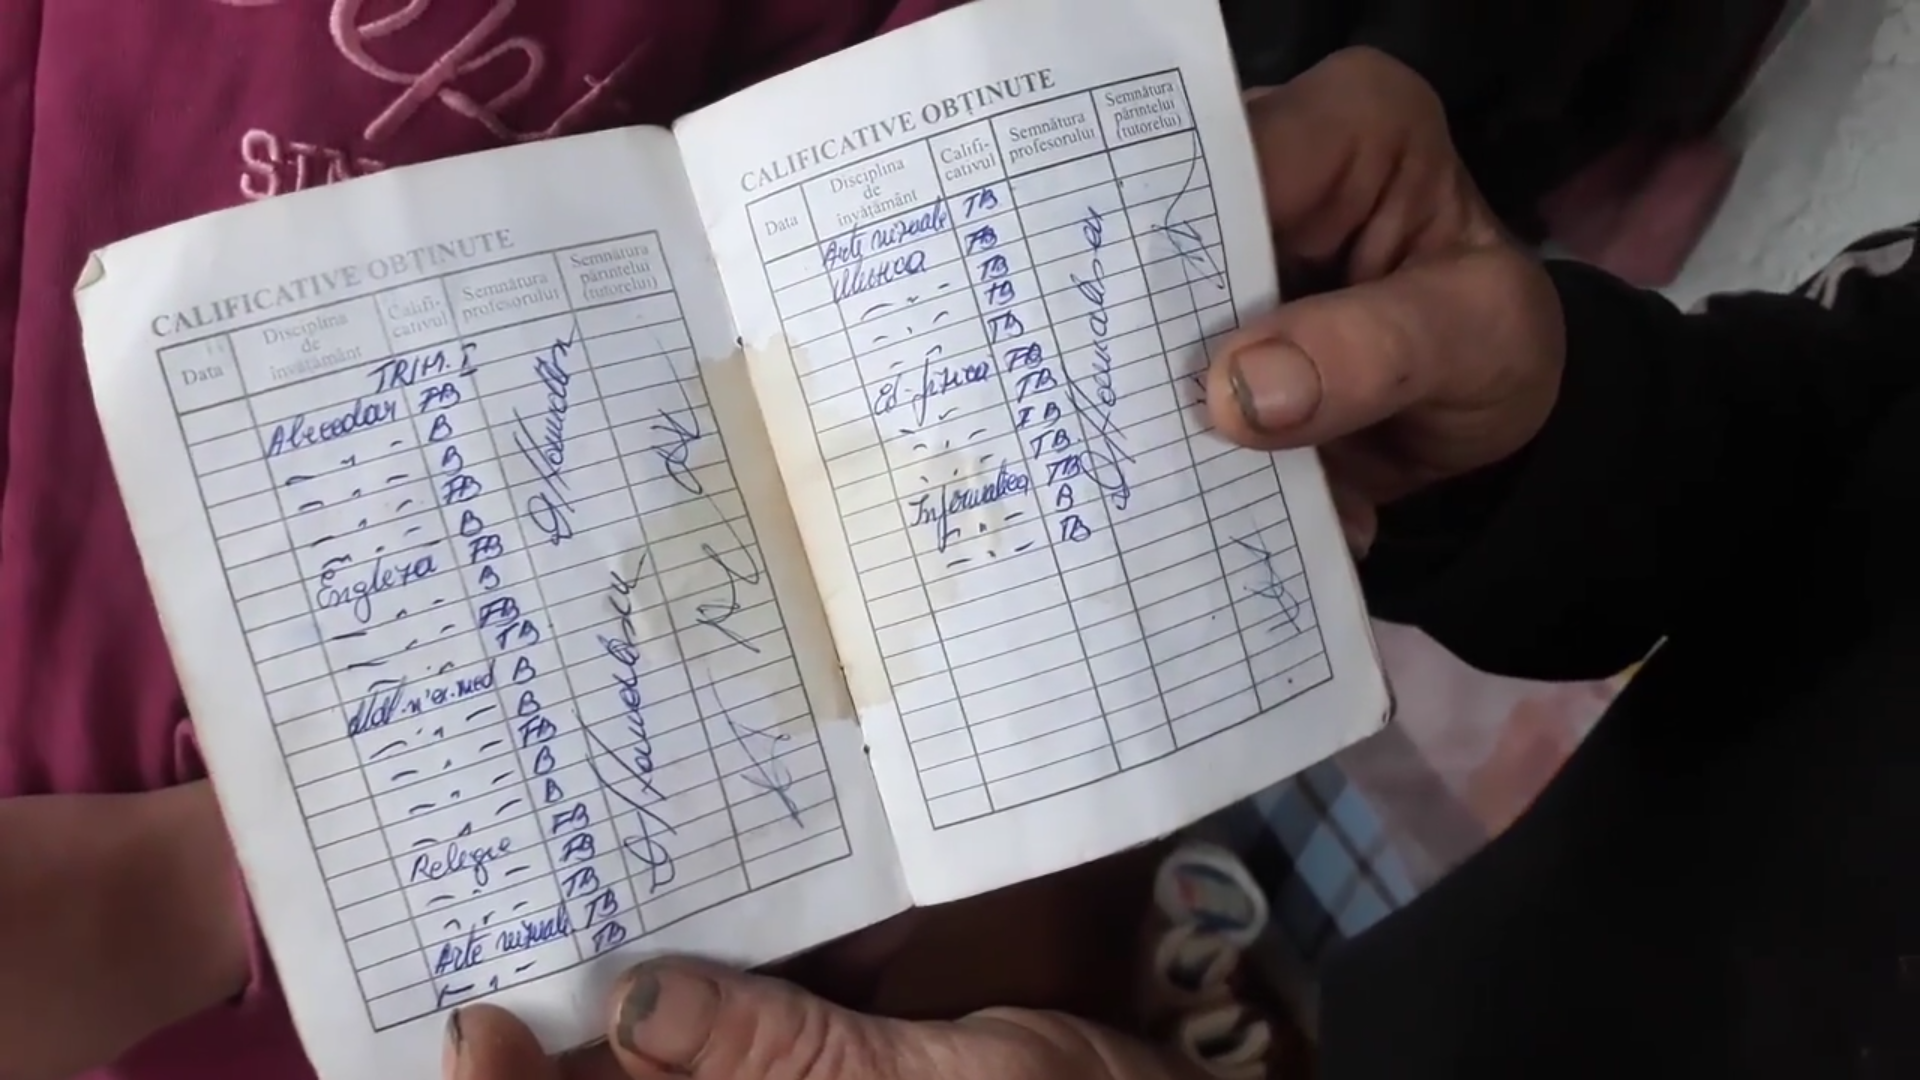 STA
CALIFICATIVE OBȚINUTE
Data
Disciplina de învățământ
Califi-cativul
Semnătura profesorului
Semnătura părintelui (tutorelui)
TRIM. I
Abecedar FB
- " - B
- " - B
- " - FB
- " - B
Engleza FB
- " - B
- " - FB
- " - TB
B
- " - B
- " - FB
- " - B
- " - B
Religie FB
- " - FB
- " - TB
Arte vizuale TB
- " - TB
CALIFICATIVE OBȚINUTE
Data
Disciplina de învățământ
Califi-cativul
Semnătura profesorului
Semnătura părintelui (tutorelui)
Arte vizuale TB
Muzica FB
- " - TB
- " - TB
- " - TB
Ed. fizica FB
- " - TB
- " - TB
- " - TB
Informatica TB
- " - B
- " - TB